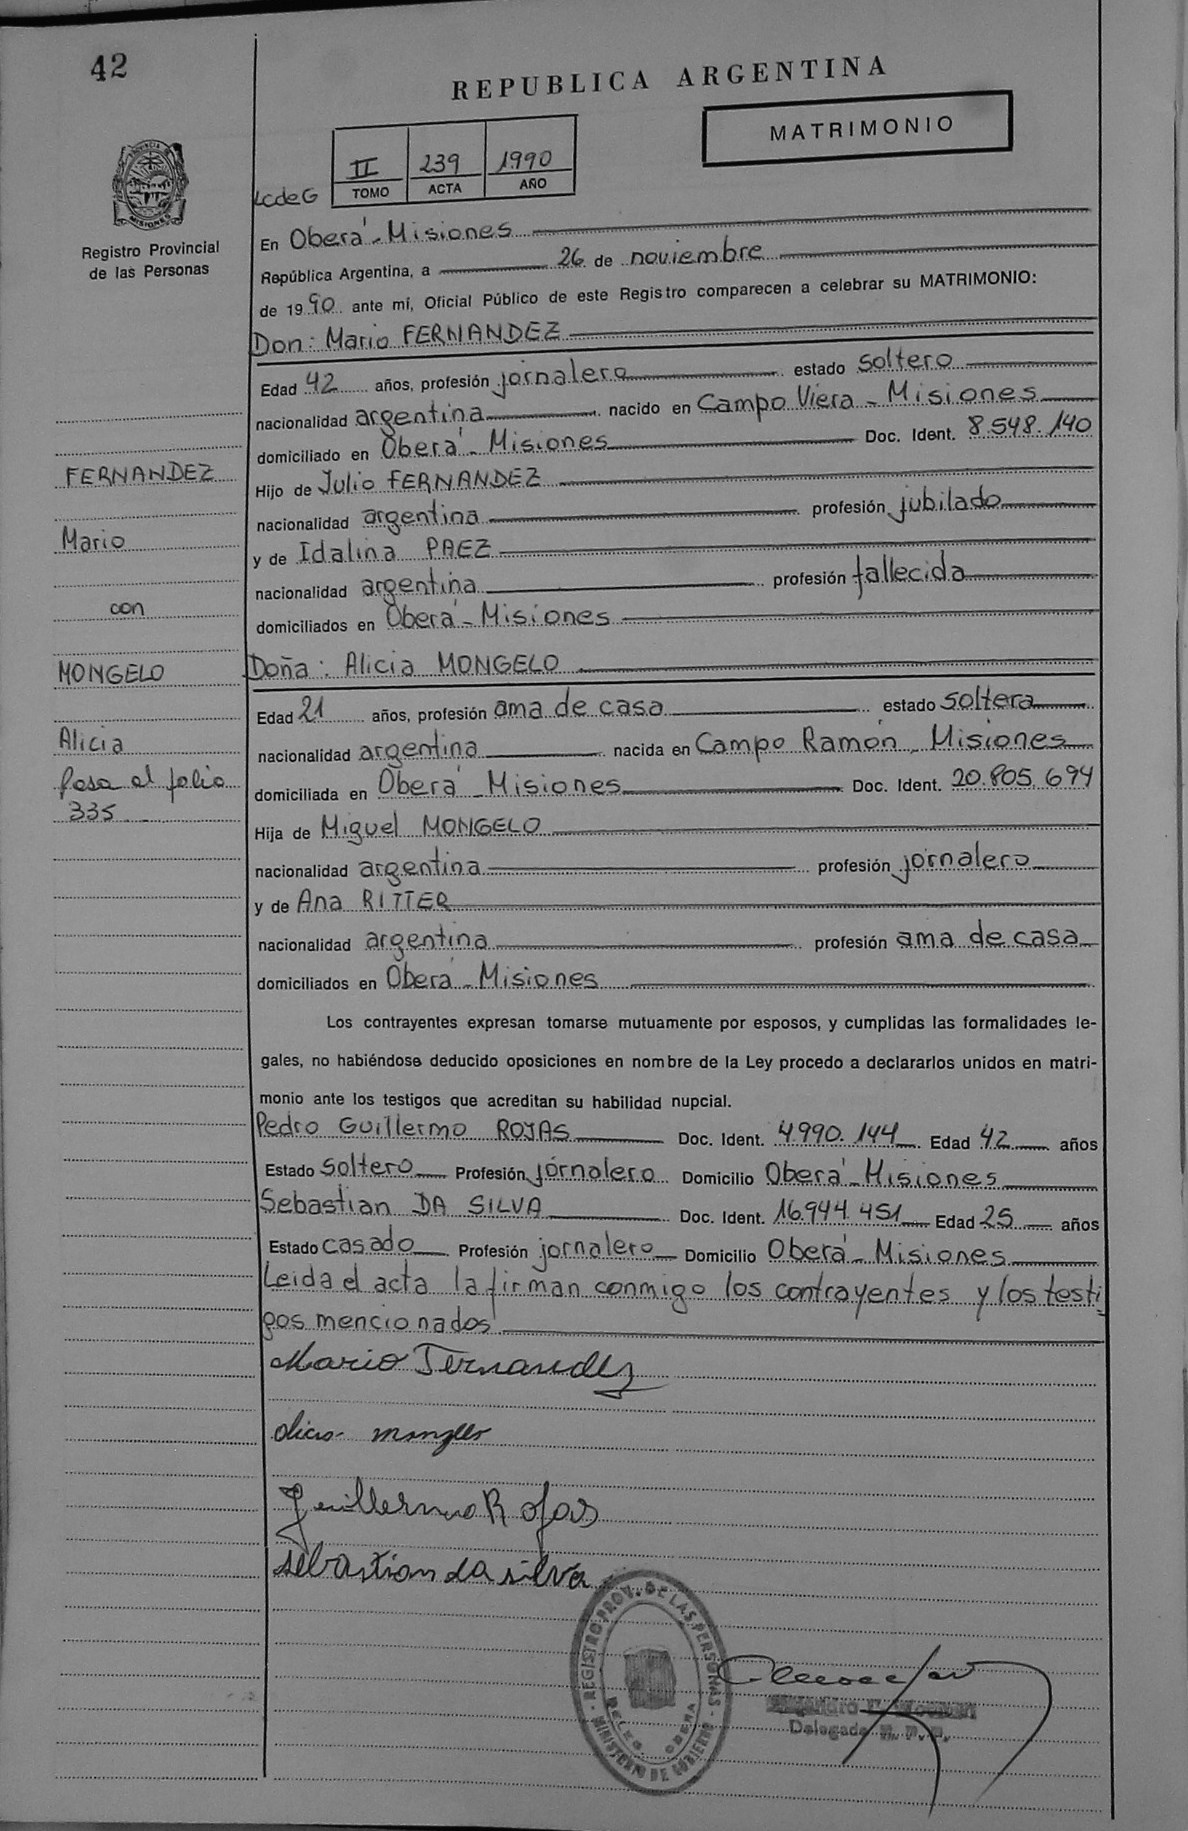 42
REPUBLICA ARGENTINA
MATRIMONIO
II 239 1990
TOMO ACTA AÑO
LcdeG
Registro Provincial
de las Personas
En Oberá - Misiones
República Argentina, a 26 de noviembre
de 1990 ante mí, Oficial Público de este Registro comparecen a celebrar su MATRIMONIO:
Don: Mario FERNANDEZ
Edad 42 años, profesión jornalero estado soltero
nacionalidad argentina nacido en Campo Viera - Misiones
domiciliado en Oberá - Misiones Doc. Ident. 8.548.140
Hijo de Julio FERNANDEZ
nacionalidad argentina profesión jubilado
y de Idalina PAEZ
nacionalidad argentina profesión fallecida
domiciliados en Oberá - Misiones
Doña: Alicia MONGELO
Edad 21 años, profesión ama de casa estado soltera
nacionalidad argentina nacida en Campo Ramón - Misiones
domiciliada en Oberá - Misiones Doc. Ident. 20.805.694
Hija de Miguel MONGELO
nacionalidad argentina profesión jornalero
y de Ana RITTER
nacionalidad argentina profesión ama de casa
domiciliados en Oberá - Misiones
FERNANDEZ
Mario
con
MONGELO
Alicia
Pasa al folio
335
Los contrayentes expresan tomarse mutuamente por esposos, y cumplidas las formalidades le-
gales, no habiéndose deducido oposiciones en nombre de la Ley procedo a declararlos unidos en matri-
monio ante los testigos que acreditan su habilidad nupcial.
Pedro Guillermo ROJAS Doc. Ident. 4.990.144 Edad 42 años
Estado soltero Profesión jornalero Domicilio Oberá - Misiones
Sebastian DA SILVA Doc. Ident. 16.944.451 Edad 25 años
Estado casado Profesión jornalero Domicilio Oberá - Misiones
Leida el acta la firman conmigo los contrayentes y los testi
gos mencionados
Mario Fernandez
Guillermo Rojas
sebastian da silva
REGISTRO PROV. DE LAS PERSONAS
MINISTERIO DE GOBIERNO
DELEG. OBERA
Delegada